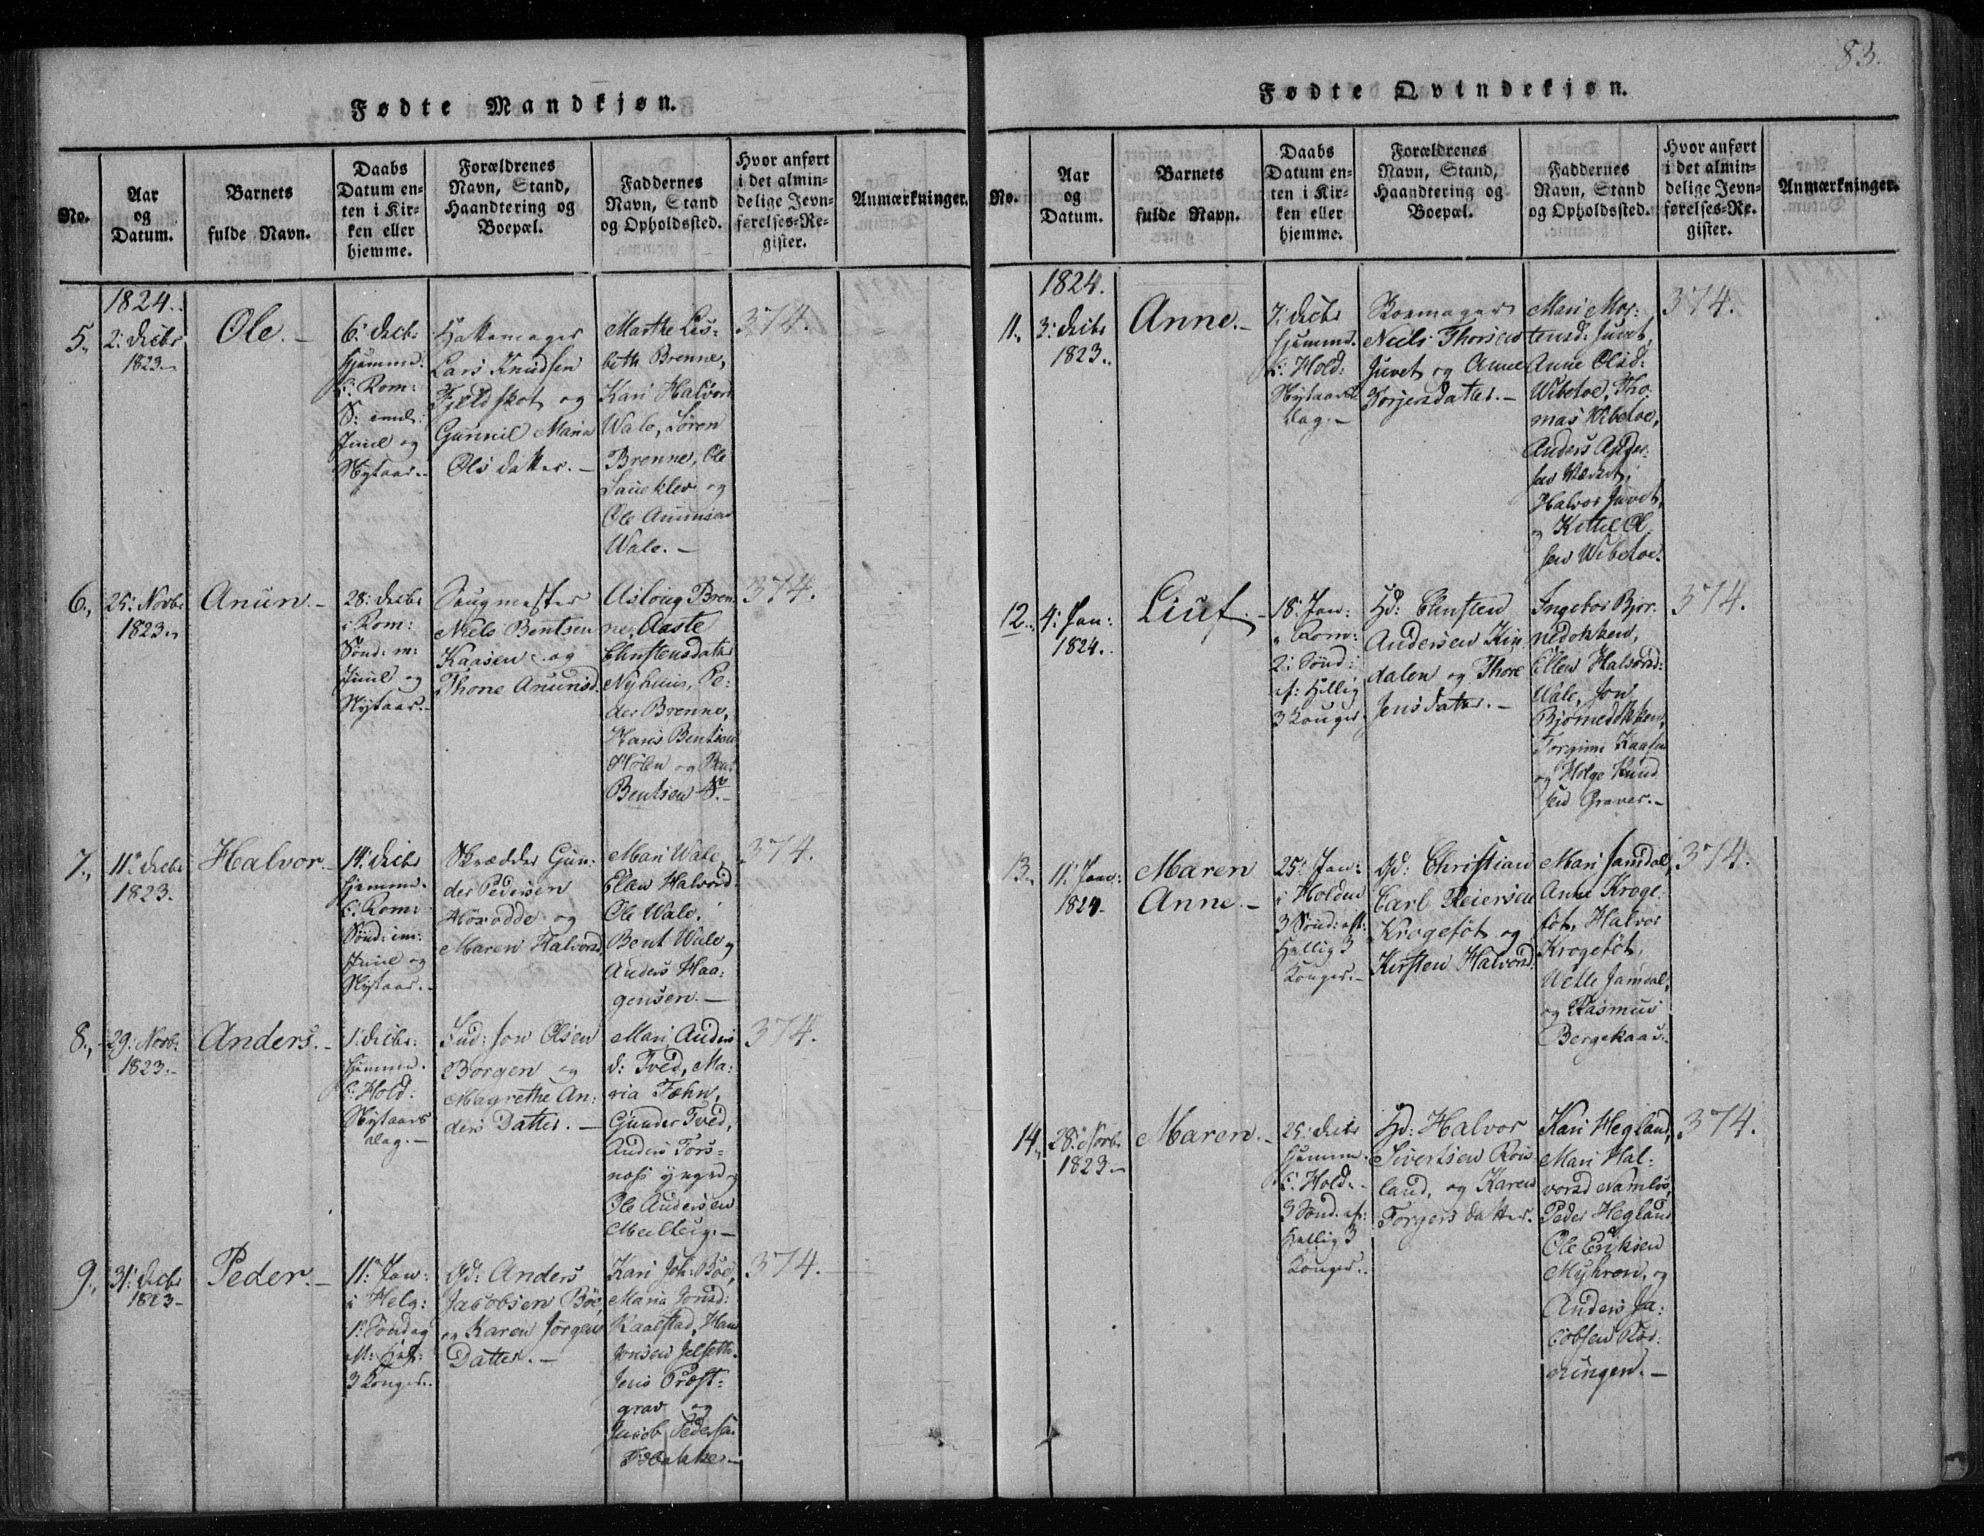 83.
Fødte Mandkjøn.
No.
Aar
og
Datum.
Barnets
fulde Navn.
Daabs
Datum en-
ten i Kir-
ken eller
hjemme.
Forældrenes
Navn, Stand,
Haandtering og
Boepæl.
Faddernes
Navn, Stand
og Opholdssted.
Hvor anført
i det almin-
delige Jevn-
førelses-Re-
gister.
Anmærkninger.
1824.
5.,
2: Decbr
1823.
Ole.
6: Decbr
hjemme.
C: Rom:
S: iml.
Juul og
Nytaar.
Hattemager
Lars Knudsen
Fjeldskot og
Gunnil Maria
Ols datter.
Marthe Lis-
beth Brenne,
Kari Halvors
Wale, Søren
Brenne, Ole
Saueklev og
Ole Anunsen
Wale.
374.
6.,
25: Novbr
1823.
Anun.
28: Decbr
i Rom:
Sønd: m:
Juul og
Nytaar.
Saugmester
Niels Bentsen
Kaasen og
Thone Anunsd.
Asloug Bren-
ne, Aaste
Christensdatter
Nyhuus, Pe-
der Brenne,
Hans Bentsen
Hølen og Bent
Bentsen S.
374.
7.,
11: Decbr
1823.
Halvor.
14: Decbr
hjemme.
C: Rom:
Sønd: im:
Juul og
Nytaar.
Skrædder Gun-
der Pedersen
Hørodde og
Maren Halvorsd.
Mari Wale,
Elen Halvorsd:
Ole Wale,
Bent Wale og
Anders Haa-
gensen.
374.
8.,
29: Novb:
1823.
Anders.
1: Decbr:
hjemme.
C: Hold:
Nytaars
dag.
Ind: Jon Olsen
Borgen og
Magrethe An-
ders Datter.
Mari Anders
d: Tved, Ma-
ria Fæhn,
Gunder Tved,
Anders Tors-
nass yngrd og
Ole Andersen
Melteig.
374.
9.,
31: Decbr
1823.
Peder.
11: Jan:
i Helg:
1: Søndag
M: Hel:
3 Konger.
Gd: Anders
Jacobsen Bøe,
og Karen Jørgens
Datter.
Kari Joh: Bøe,
Maria Jonsd:
Kaalstad, Hans
Jonsen Jelseth,
Jens Præst-
grav og
Jacob Pedersen
Bakke.
374.
Fødte Qvindekjøn.
No.
Aar
og
Datum.
Barnets
fulde Navn.
Daabs
Datum en-
ten i Kir-
ken eller
hjemme.
Forældrenes
Navn, Stand,
Haandtering og
Boepæl.
Faddernes
Navn, Stand
og Opholdssted.
Hvor anført
i det almin-
delige Jevn-
førelses-Re-
gister.
Anmærkninger.
1824.
11.
3: Decbr
1823.
Anne.
7: Decbr
hjemme.
C: Hold:
Nytaars
dag.
Skoemager
Niels Thorsen
Juvet og Anne
Torjersdatter.
Mari Mor-
tensd: Juvet,
Anne Olsd:
Wibetoe, Tho-
mas Wibetoe,
Anders Ander-
sen Værket,
Halvor Juvet
og Kittil Ol-
sen Wibetoe.
374.
12.
4: Jan:
1824.
Liuf.
18: Jan:
i Rom:
2: Sønd:
ef: Hellig
3 Konger.
Hd: Christen
Andersen Kin-
dalen og Thore
Jensdatter.
Ingebor Bjor-
nedokken,
Ellen Halvorsd:
Wale, Jon
Bjørnedokken,
Torgrim Kaasen
og Helge Knud-
sen Graver.
374.
13.
11: Jan:
1824.
Maren
Anne.
25: Jan:
i Holden
3 Sønd: eft:
Hellig 3
Konger.
Gd: Christian
Carl Reiersen
Krogefòt og
Kirsten Halvorsd:
Mari Jamdal,
Anne Kroge-
fòt, Halvor
Krogefòt,
Wetle Jamdal,
og Rasmus
Bergekaas.
374.
14.
28: Novb.
1823.
Maren.
25: Decbr
hjemme.
C: Hold:
3 Sønd: ef:
Hellig 3
Konger.
Hd: Halvor
Sivertsen Røis-
land, og Karen
Torgersdatter.
Kari Hegland,
Mari Hal-
vorsd Namløs,
Peder Hegland
Ole Eriksen
Myhren, og
Anders Ja-
cobsen Rør-
ningen.
374.